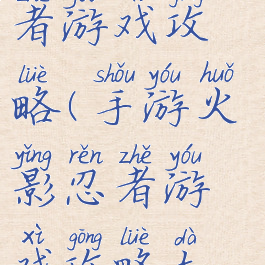 者游戏攻
lüè shǒu yóu huǒ
略(手游火
yǐng rěn zhě yóu
影忍者游
xì gōng lüè dà